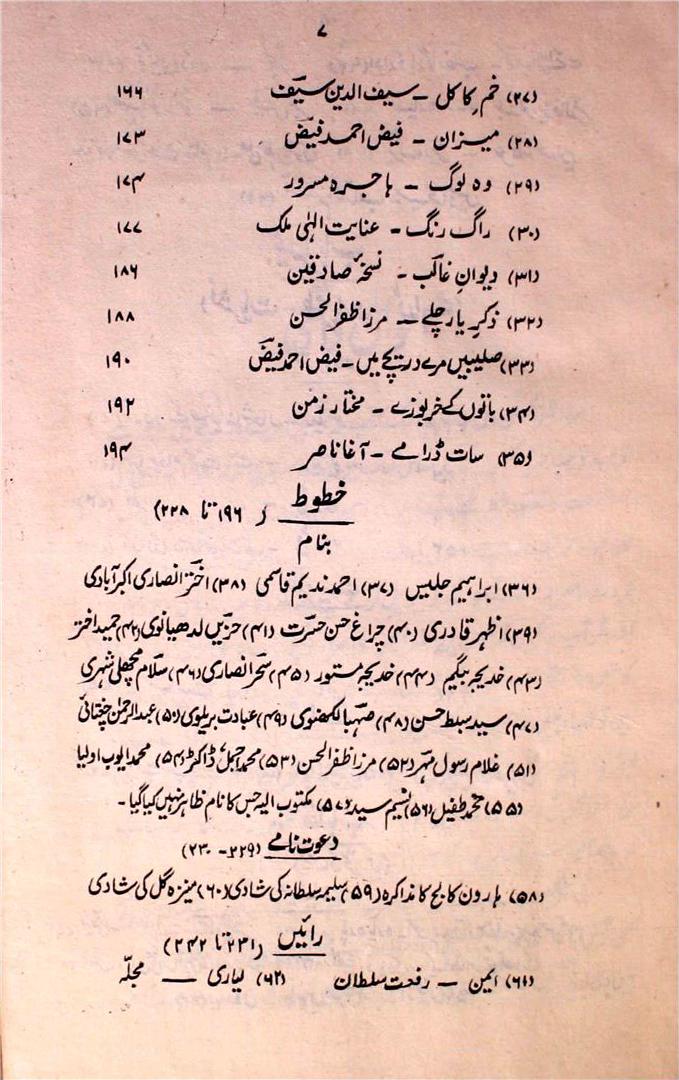 ۷
(۲۷) خمِ کاکل - سیف الدین سیفؔ ۱۶۶
(۲۸) میزان - فیض احمد فیضؔ ۱۷۳
(۲۹) وہ لوگ - ہاجرہ مسرور ۱۷۴
(۳۰) راگ رنگ - عنایت الٰہی ملک ۱۷۷
(۳۱) دیوانِ غالبؔ - نسخۂ صادقین ۱۸۶
(۳۲) ذکرِ یار چلے - مرزا ظفر الحسن ۱۸۸
(۳۳) صلیبیں مرے دریچے میں - فیض احمد فیضؔ ۱۹۰
(۳۴) باتوں کے خربوزے - مختار زمن ۱۹۲
(۳۵) سات ڈرامے - آغا ناصر ۱۹۴
خطوط (۱۹۶ تا ۲۲۸)
بنام
(۳۶) ابراہیم جلیس (۳۷) احمد ندیم قاسمی (۳۸) اخترؔ انصاری اکبرآبادی
(۳۹) اظہر قادری (۴۰) چراغ حسن حسرتؔ (۴۱) حزیںؔ لدھیانوی (۴۲) حمید اختر
(۴۳) خدیجہ بیگم (۴۴) خدیجہ مستور (۴۵) سحرؔ انصاری (۴۶) سلامؔ مچھلی شہری
(۴۷) سید سبط حسن (۴۸) صہباؔ لکھنوی (۴۹) عبادت بریلوی (۵۰) عبدالرحمٰن چغتائی
(۵۱) غلام رسول مہرؔ (۵۲) مرزا ظفر الحسن (۵۳) محمد اجمل ڈاکٹر (۵۴) محمد ایوب اولیا
(۵۵) محمد طفیل (۵۶) نسیم سید (۵۷) مکتوب الیہ جس کا نام ظاہر نہیں کیا گیا۔
دعوت نامے (۲۲۹-۲۳۰)
(۵۸) ہارون کالج کا مذاکرہ (۵۹) سلیمہ سلطانہ کی شادی (۶۰) منیزہ گل کی شادی
رائیں (۲۳۱ تا ۲۴۲)
(۶۱) ایمن - رفعت سلطان (۶۲) لیاری - مجلّہ